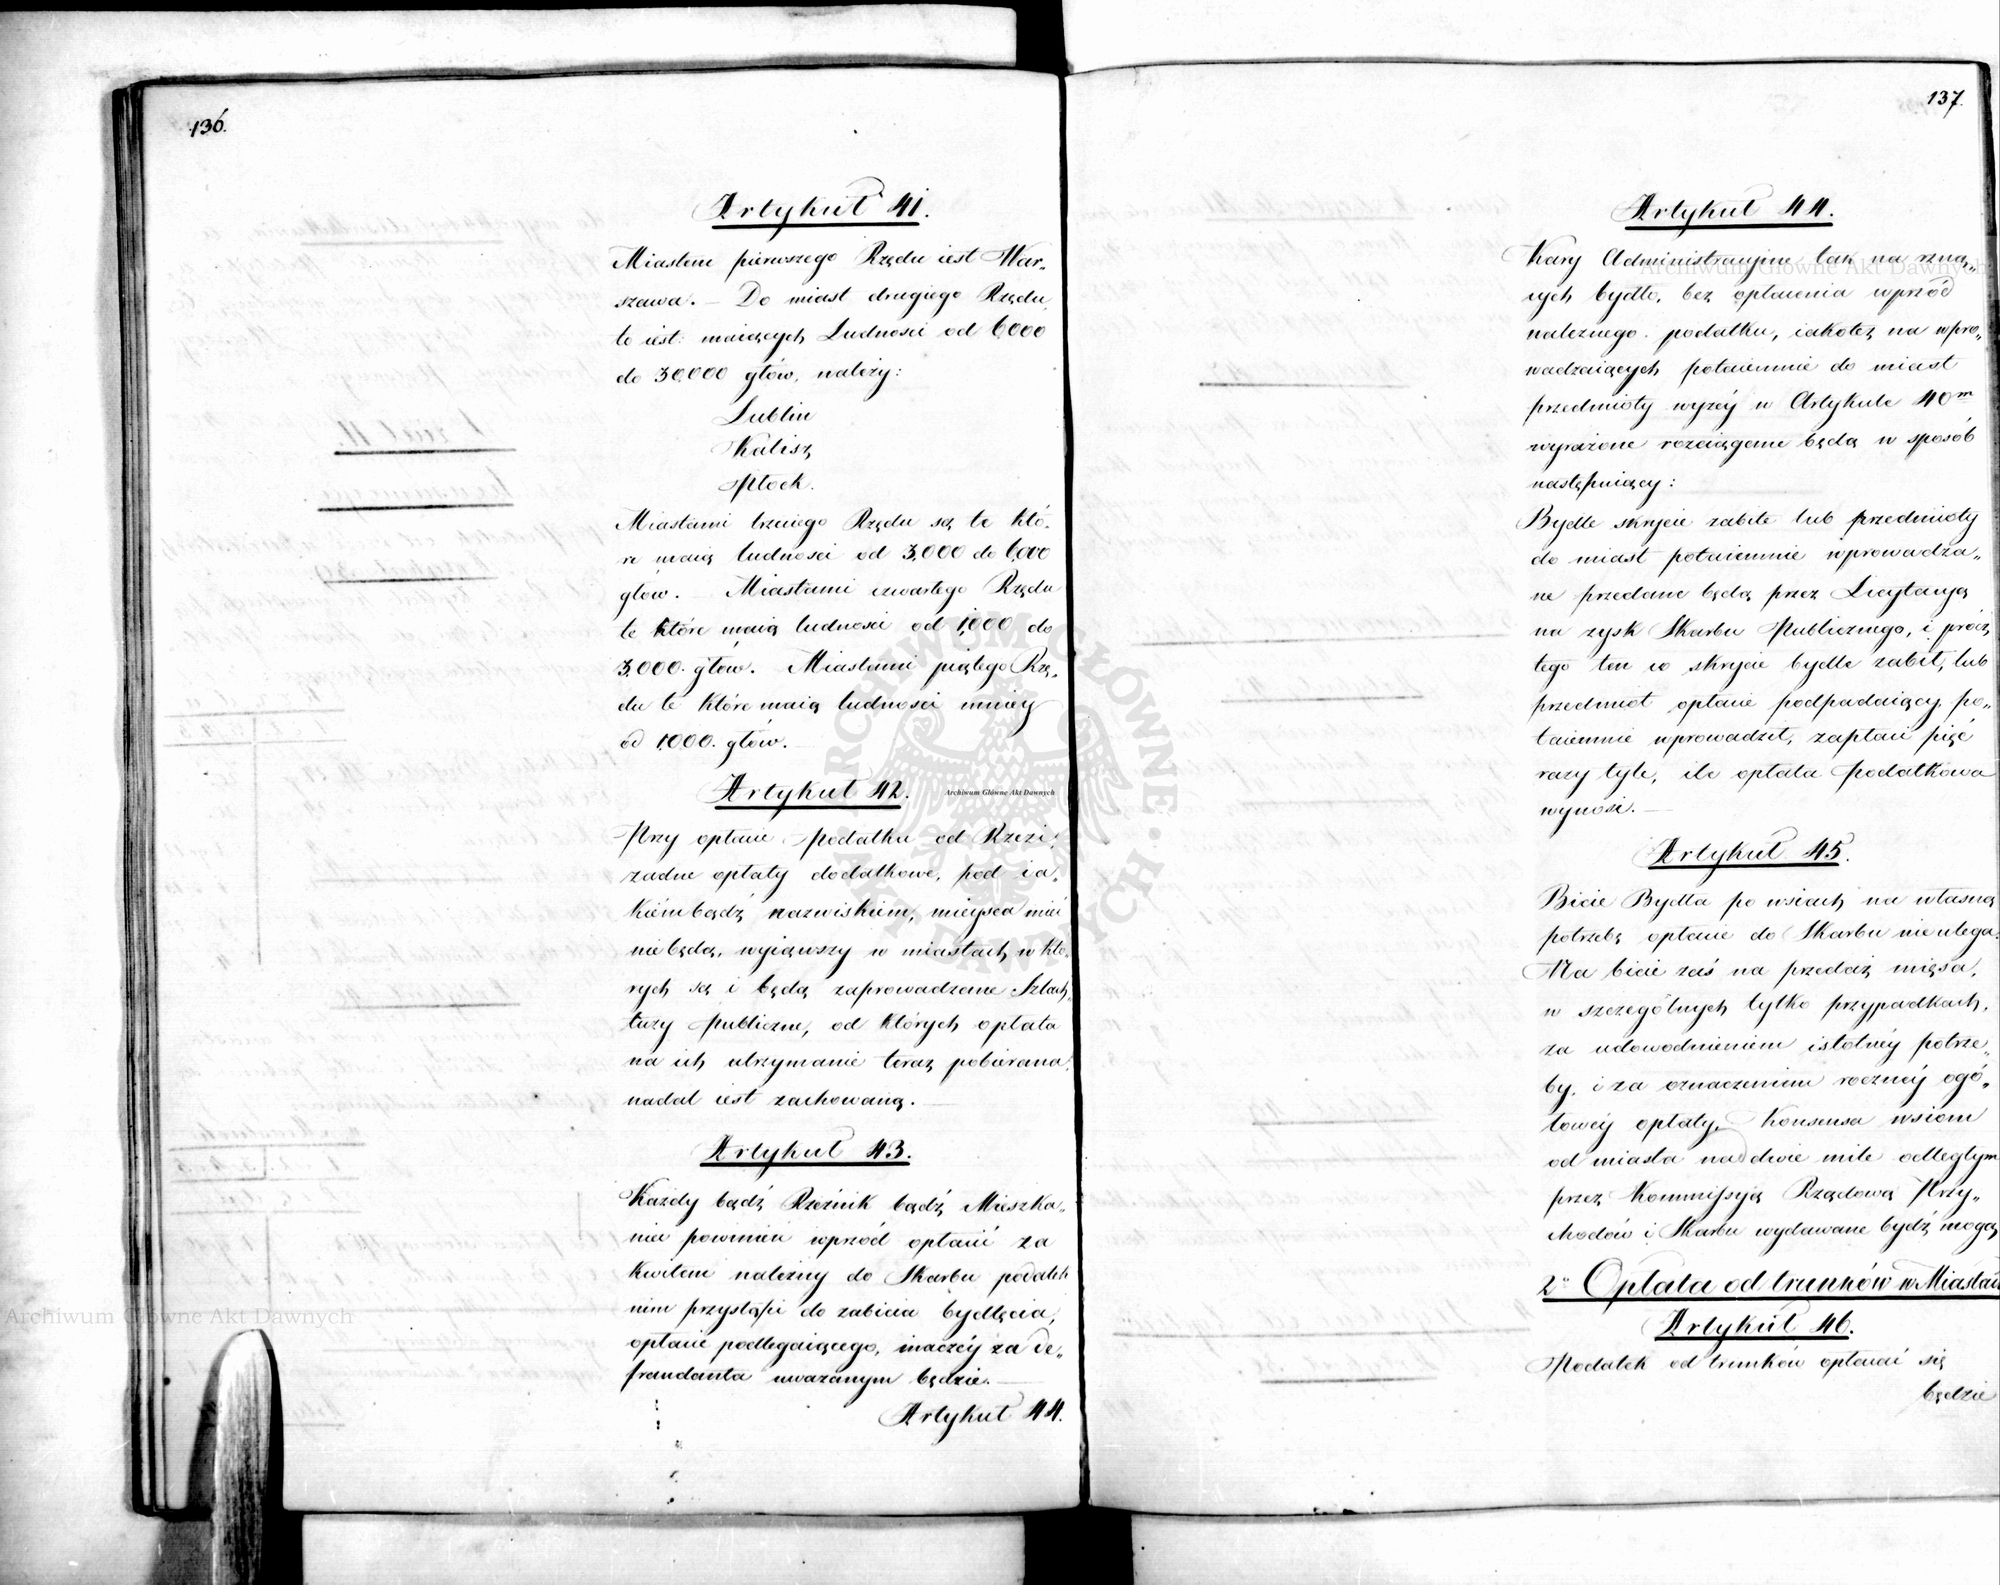 136.
Artykuł 41.
Miastem pierwszego Rzędu iest War„
szawa. — Do miast drugiego Rzędu,
to iest: maiących Ludności od 6,000
do 30,000 głów, należy:
Lublin
Kalisz
Płock.
Miastami trzeciego Rzędu są te któ-
re maią ludności od 3,000 do 6,000
głów. — Miastami czwartego Rzędu
te które maią ludności od 1,000 do
3,000. głów. Miastami piątego Rzę„
du te które maią ludności mniey
od 1,000. głów. —
Artykuł 42.
Przy opłacie Podatku od Rzezi,
żadne opłaty dodatkowe, pod ia„
kiémbądź nazwiskiem, mieysca mieć
nie będą, wyiąwszy w miastach w któ„
rych są i będą zaprowadzone Szlach„
tuzy Publiczne, od których opłata
na ich utrzymanie teraz pobierana,
nadal iest zachowaną. —
Artykuł 43.
Każdy bądź Rzeźnik bądź Mieszka„
niec powinien wprzód opłacić za
kwitem należny do Skarbu podatek
nim przystąpi do zabicia bydlęcia,
opłacie podlegaiącego, inaczéy za de„
fraudanta uważanym będzie. —
Artykuł 44.
137.
Artykuł 44.
Kary Administracyjne tak na rzną„
cych bydło, bez opłacenia wprzód
należnego podatku, iakoteż na wpro„
wadzaiących potaiemnie do miast
przedmioty wyzéy w Artykule 40m
wyrażone rozciągane będą w sposób
następuiący:
Bydle skrycie zabite lub przedmioty
do miast potaiemnie wprowadza„
ne przedane będą przez Licytacyą
na zysk Skarbu Publicznego, i prócz
tego ten co skrycie bydle zabił, lub
przedmiot opłacie podpadaiący po„
taiemnie wprowadził, zapłaci pięć
razy tyle, ile opłata podatkowa
wynosi. —
Artykuł 45.
Bicie Bydła po wsiach na własną
potrzebę opłacie do Skarbu nie ulega.
Na bicie zaś na przedaż mięsa,
w szczególnych tylko przypadkach,
za udowodnieniem istotnéy potrze„
by, i za oznaczeniem rocznéy ogó„
łowéy opłaty, Konsensa wsiom
od miasta na dwie mile odległym
przez Kommissyią Rządową Przy„
chodów i Skarbu wydawane bydź mogą
2o Opłata od trunków w Miastach
Artykuł 46.
Podatek od trunków opłacać się
będzie
Archiwum Główne Akt Dawnych
Archiwum Główne Akt Dawnych
Archiwum Główne Akt Dawnych
ARCHIWUM GŁÓWNE AKT DAWNYCH